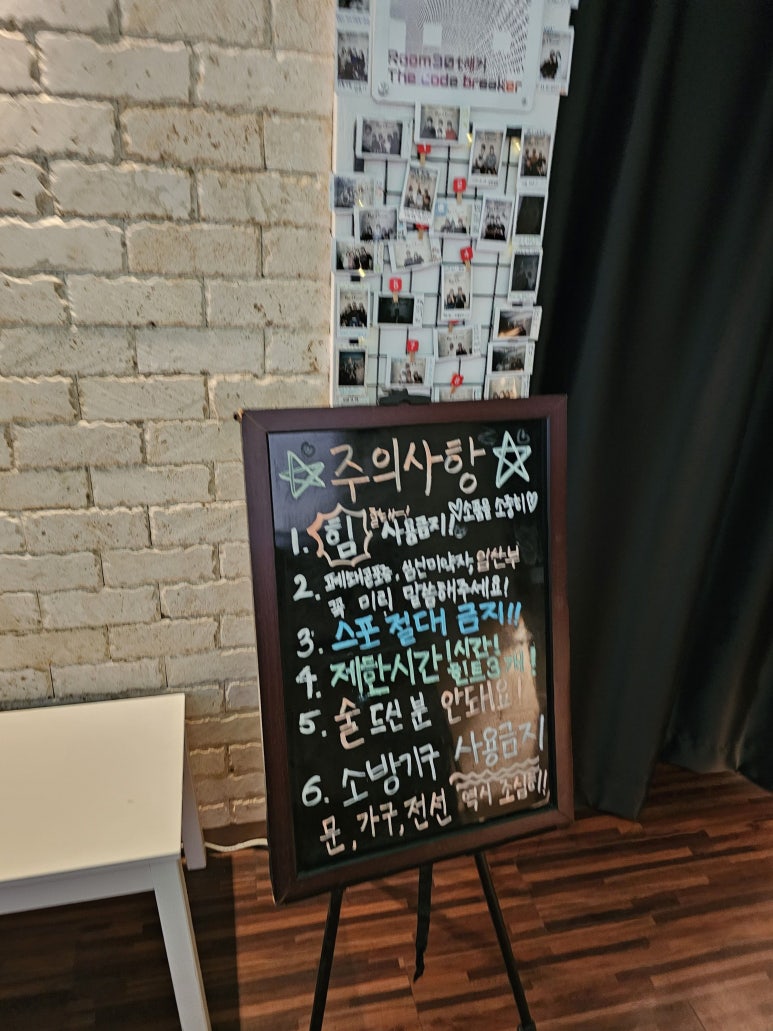 The code breaker
주의사항
1. 힘 사용금지! ♡소품을 소중히♡
2. 폐쇄공포증, 심신미약자, 임산부
꼭 미리 말씀해주세요!
3. 스포 절대 금지!!
4. 제한시간 1시간!
힌트3개!
5. 술 드신 분 안돼요!
6. 소방기구 사용금지
문, 가구, 전선 역시 조심히!!